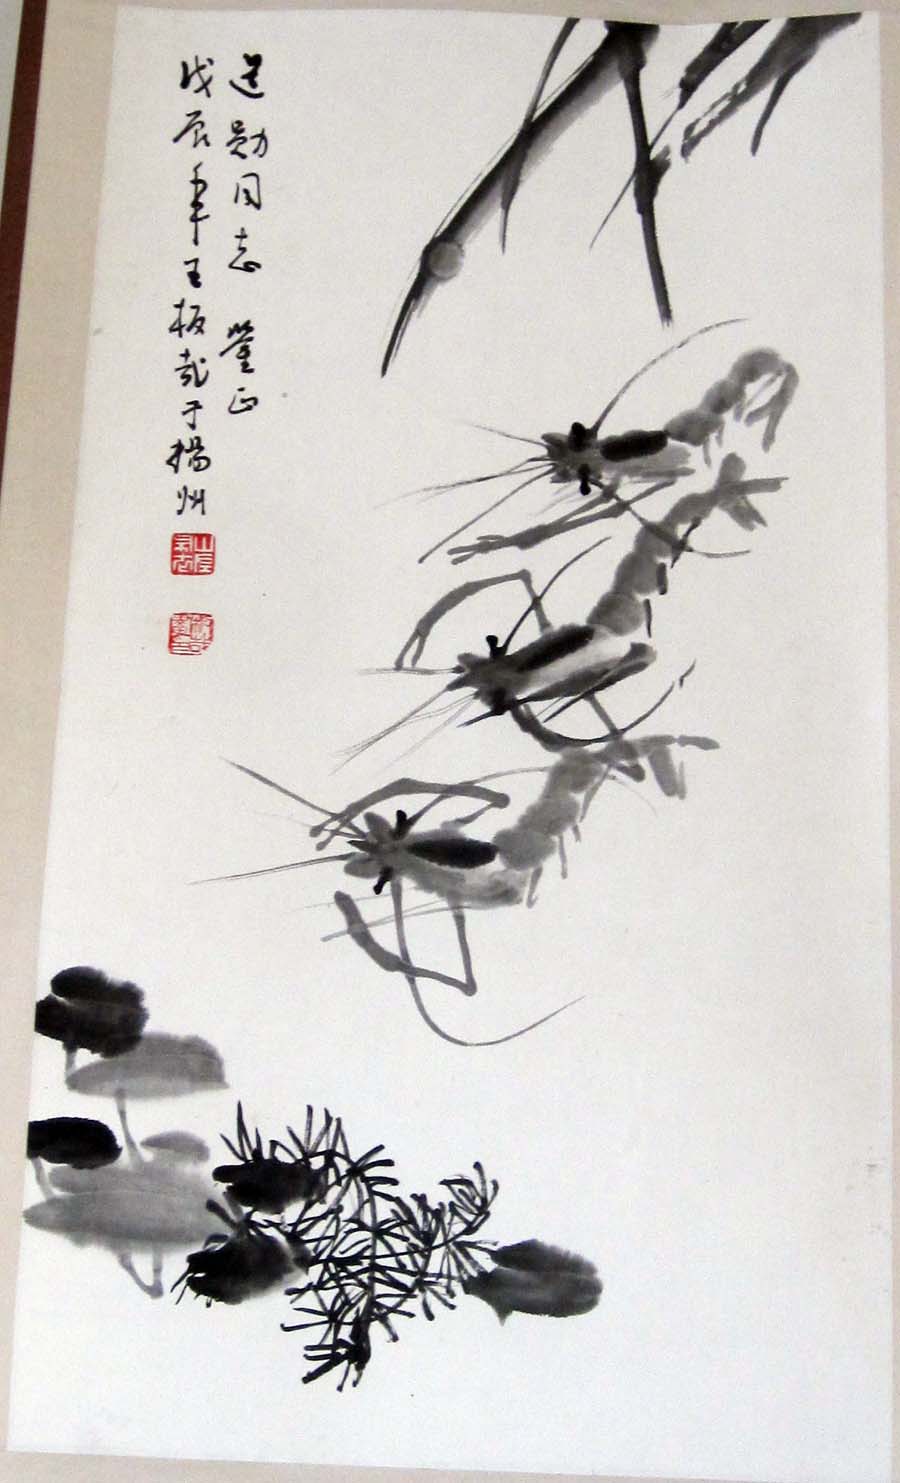 勋同志 鉴正
戊辰年王板哉于揚州